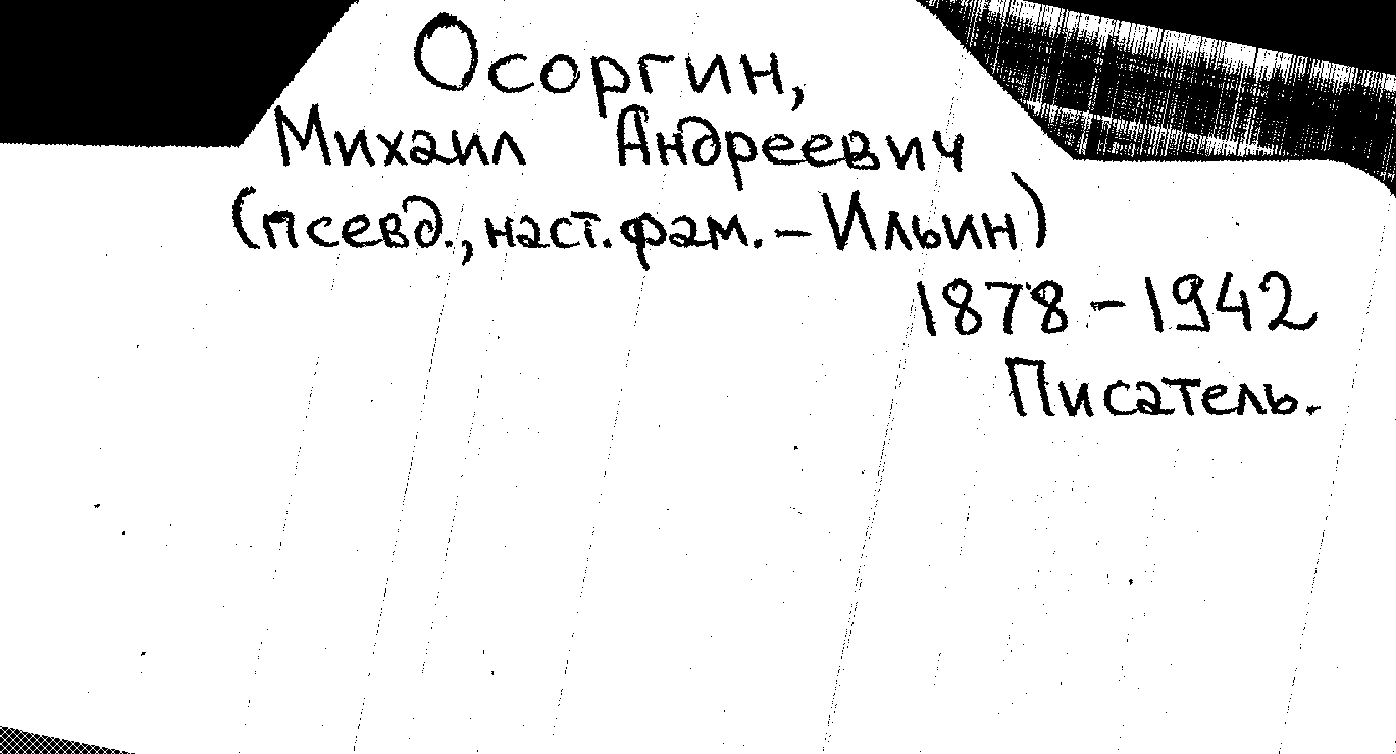 Осоргин,
Михаил Андреевич
(псевд., наст. фам. – Ильин)
1878 – 1942
Писатель.